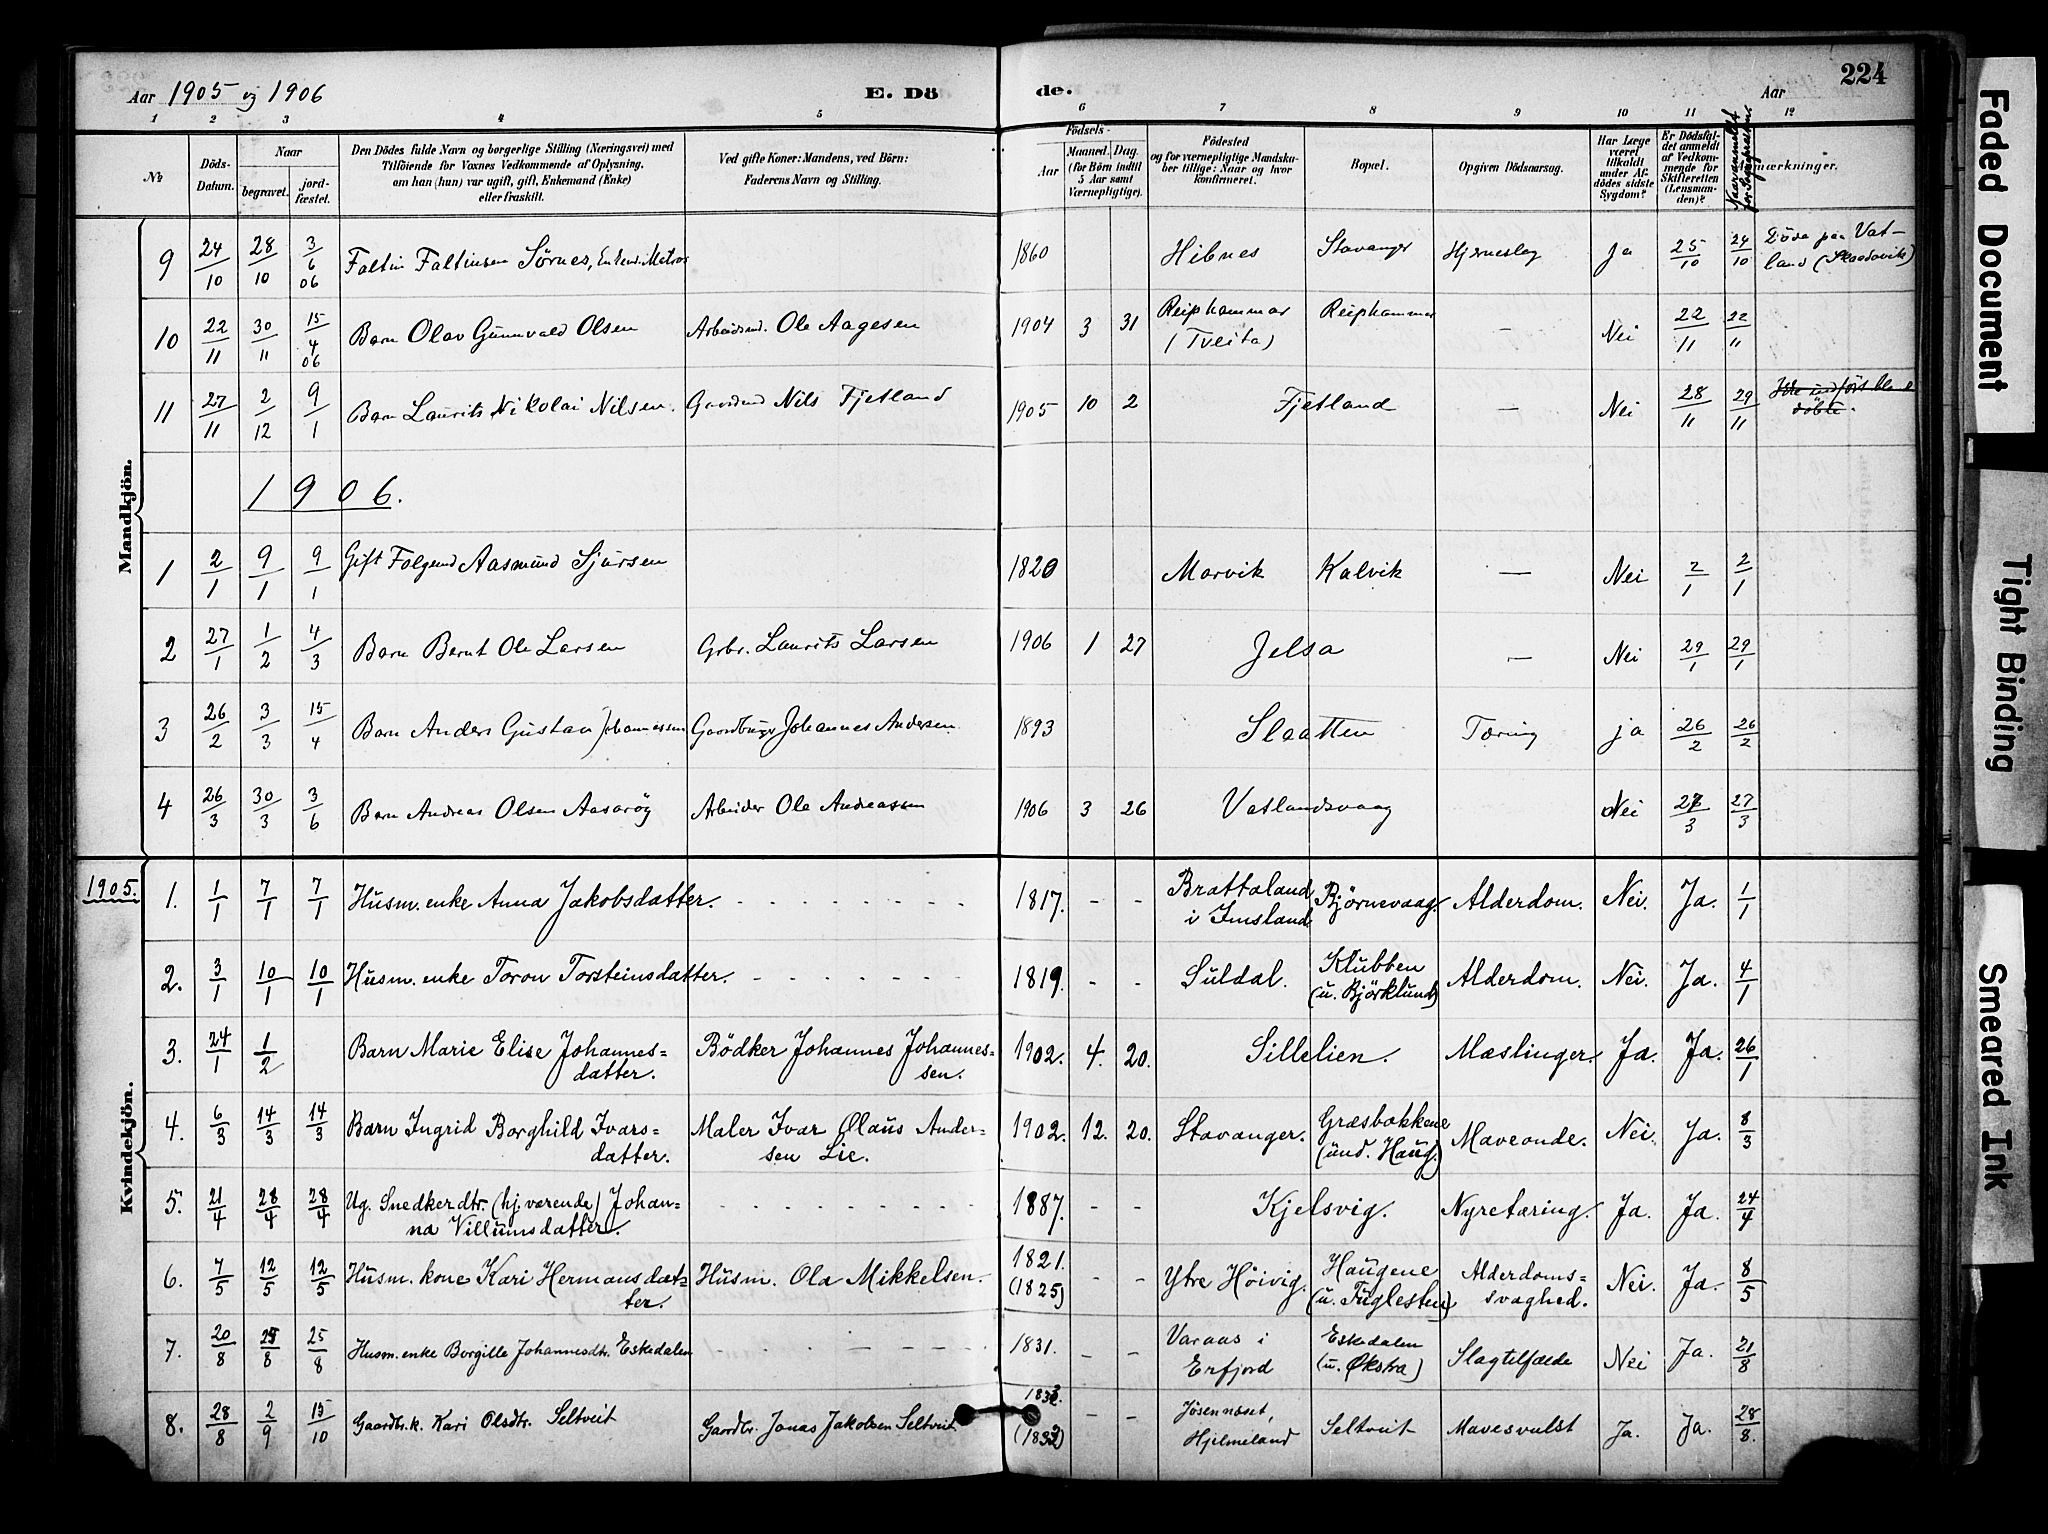 Aar 1905 og 1906
E. Dö
de.
Aar
224
1 2 3 4 5 6 7 8 9 10 11 12
№
Döds-Datum.
Naar
begravet.
jord-fæstet.
Den Dödes fulde Navn og borgerlige Stilling (Næringsvei) med
Tilföiende for Voxnes Vedkommende af Oplysning,
om han (hun) var ugift, gift, Enkemand (Enke)
eller fraskilt.
Ved gifte Koner: Mandens, ved Börn:
Faderens Navn og Stilling.
Födsels-
Aar
Maaned. Dag.
(for Börn indtil
5 Aar samt
Værnepligtige).
Födested
og for værnepligtige Mandska-
ber tillige: Naar og hvor
konfirmeret.
Bopæl.
Opgiven Dödsaarsag.
Har Læge
været
tilkaldt
under Af-
dödes sidste
Sygdom?
Er Dödsfal-
det anmeldt
af Vedkom-
mende for
Skifteretten
(Lensman-
den)?
Naar anmeldt
for Sognepræsten
mærkninger.
Mandkjön.
9 24/10 28/10 3/6 06 Faltin Faltinsen Sörnes, Enkem. Matros 1860 Hibnes Stavanger Hjerneslag Ja 25/10 24/10 Döde paa Vat-
land (Skaadevik)
10 22/11 30/11 15/4 06 Barn Olav Gunnvald Olsen Arbeidsmd. Ole Aagesen 1904 3 31 Reiphammar
(Tveita) Reiphammar — Nei 22/11 22/11
11 27/11 2/12 9/1 Barn Laurits Nikolai Nilsen. Gaardmd Nils Fjetland 1905 10 2 Fjetland — Nei 28/11 29/11 Ikke indfört blandt
döbte.
1906.
1 2/1 9/1 9/1 Gift Folgemd Aasmund Sjursen 1820 Marvik Kalvik — Nei 2/1 2/1
2 27/1 1/2 4/3 Barn Bernt Ole Larsen Grbr. Laurits Larsen 1906 1 27 Jelsa — Nei 29/1 29/1
3 26/2 3/3 15/4 Barn Anders Gustav Johannessen Gaardbruger Johannes Andersen 1893 Slaatten Tæring ja 26/2 26/2
4 26/3 30/3 3/6 Barn Andreas Olsen Aasaröy Arbeider Ole Andreassen 1906 3 26 Vatlandsvaag Nei 27/3 27/3
Kvindekjön.
1905.
1. 1/1 7/1 7/1 Husm. enke Anna Jakobsdatter. 1817. - - Brattaland
i Imsland Björnevaag. Alderdom. Nei. Ja. 1/1
2. 3/1 10/1 10/1 Husm. enke Toron Torsteinsdatter. 1819. - - Suldal. Klubben
(u. Björklund) Alderdom. Nei. Ja. 4/1
3. 24/1 1/2 Barn Marie Elise Johannes=
datter. Bödker Johannes Johannes=
sen. 1902. 4. 20. Sillelien. Mæslinger. Ja. Ja. 26/1
4. 6/3 14/3 14/3 Barn Ingrid Borghild Ivars=
datter. Maler Ivar Olaus Ander-
sen Lie. 1902. 12. 20. Stavanger. Græsbakkene
(und. Haug.) Maveonde. Nei. Ja. 8/3
5. 21/4 28/4 28/4 Ug. Snedkerdtr. (hj. værende) Johan=
na Villumsdatter. 1887. - - Kjelsvig. Nyretæring. Ja. Ja. 24/4
6. 7/5 12/5 12/5 Husm. kone Kari Hermansdat=
ter. Husm. Ola Mikkelsen. 1821.
(1825) - - Ytre Höivig. Haugene
(u. Fuglesten) Alderdoms=
svaghed. Nei. Ja. 8/5
7. 20/8 25/8 25/8 Husm. enke Borgille Johannesdtr. Eskedalen 1831. - - Varaas i
Erfjord Eskedalen
(u. Økstra) Slagtilfælde Nei Ja. 21/8
8. 28/8 2/9 15/10 Gaardbr. k. Kari Olsdtr. Seltveit Gaardbr. Jonas Jakobsen Seltveit (1832) - - Jösenneset,
Hjelmeland Seltveit Mavesvulst Ja. Ja. 28/8.
Faded Document
Tight Binding
Smeared Ink